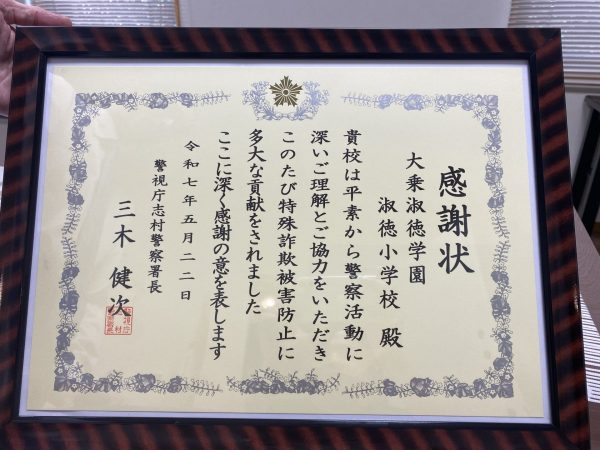 感謝状
大乗淑徳学園
淑徳小学校 殿
貴校は平素から警察活動に
深いご理解とご協力をいただき
このたび特殊詐欺被害防止に
多大な貢献をされました
ここに深く感謝の意を表します
令和七年五月二二日
警視庁志村警察署長
三木健次